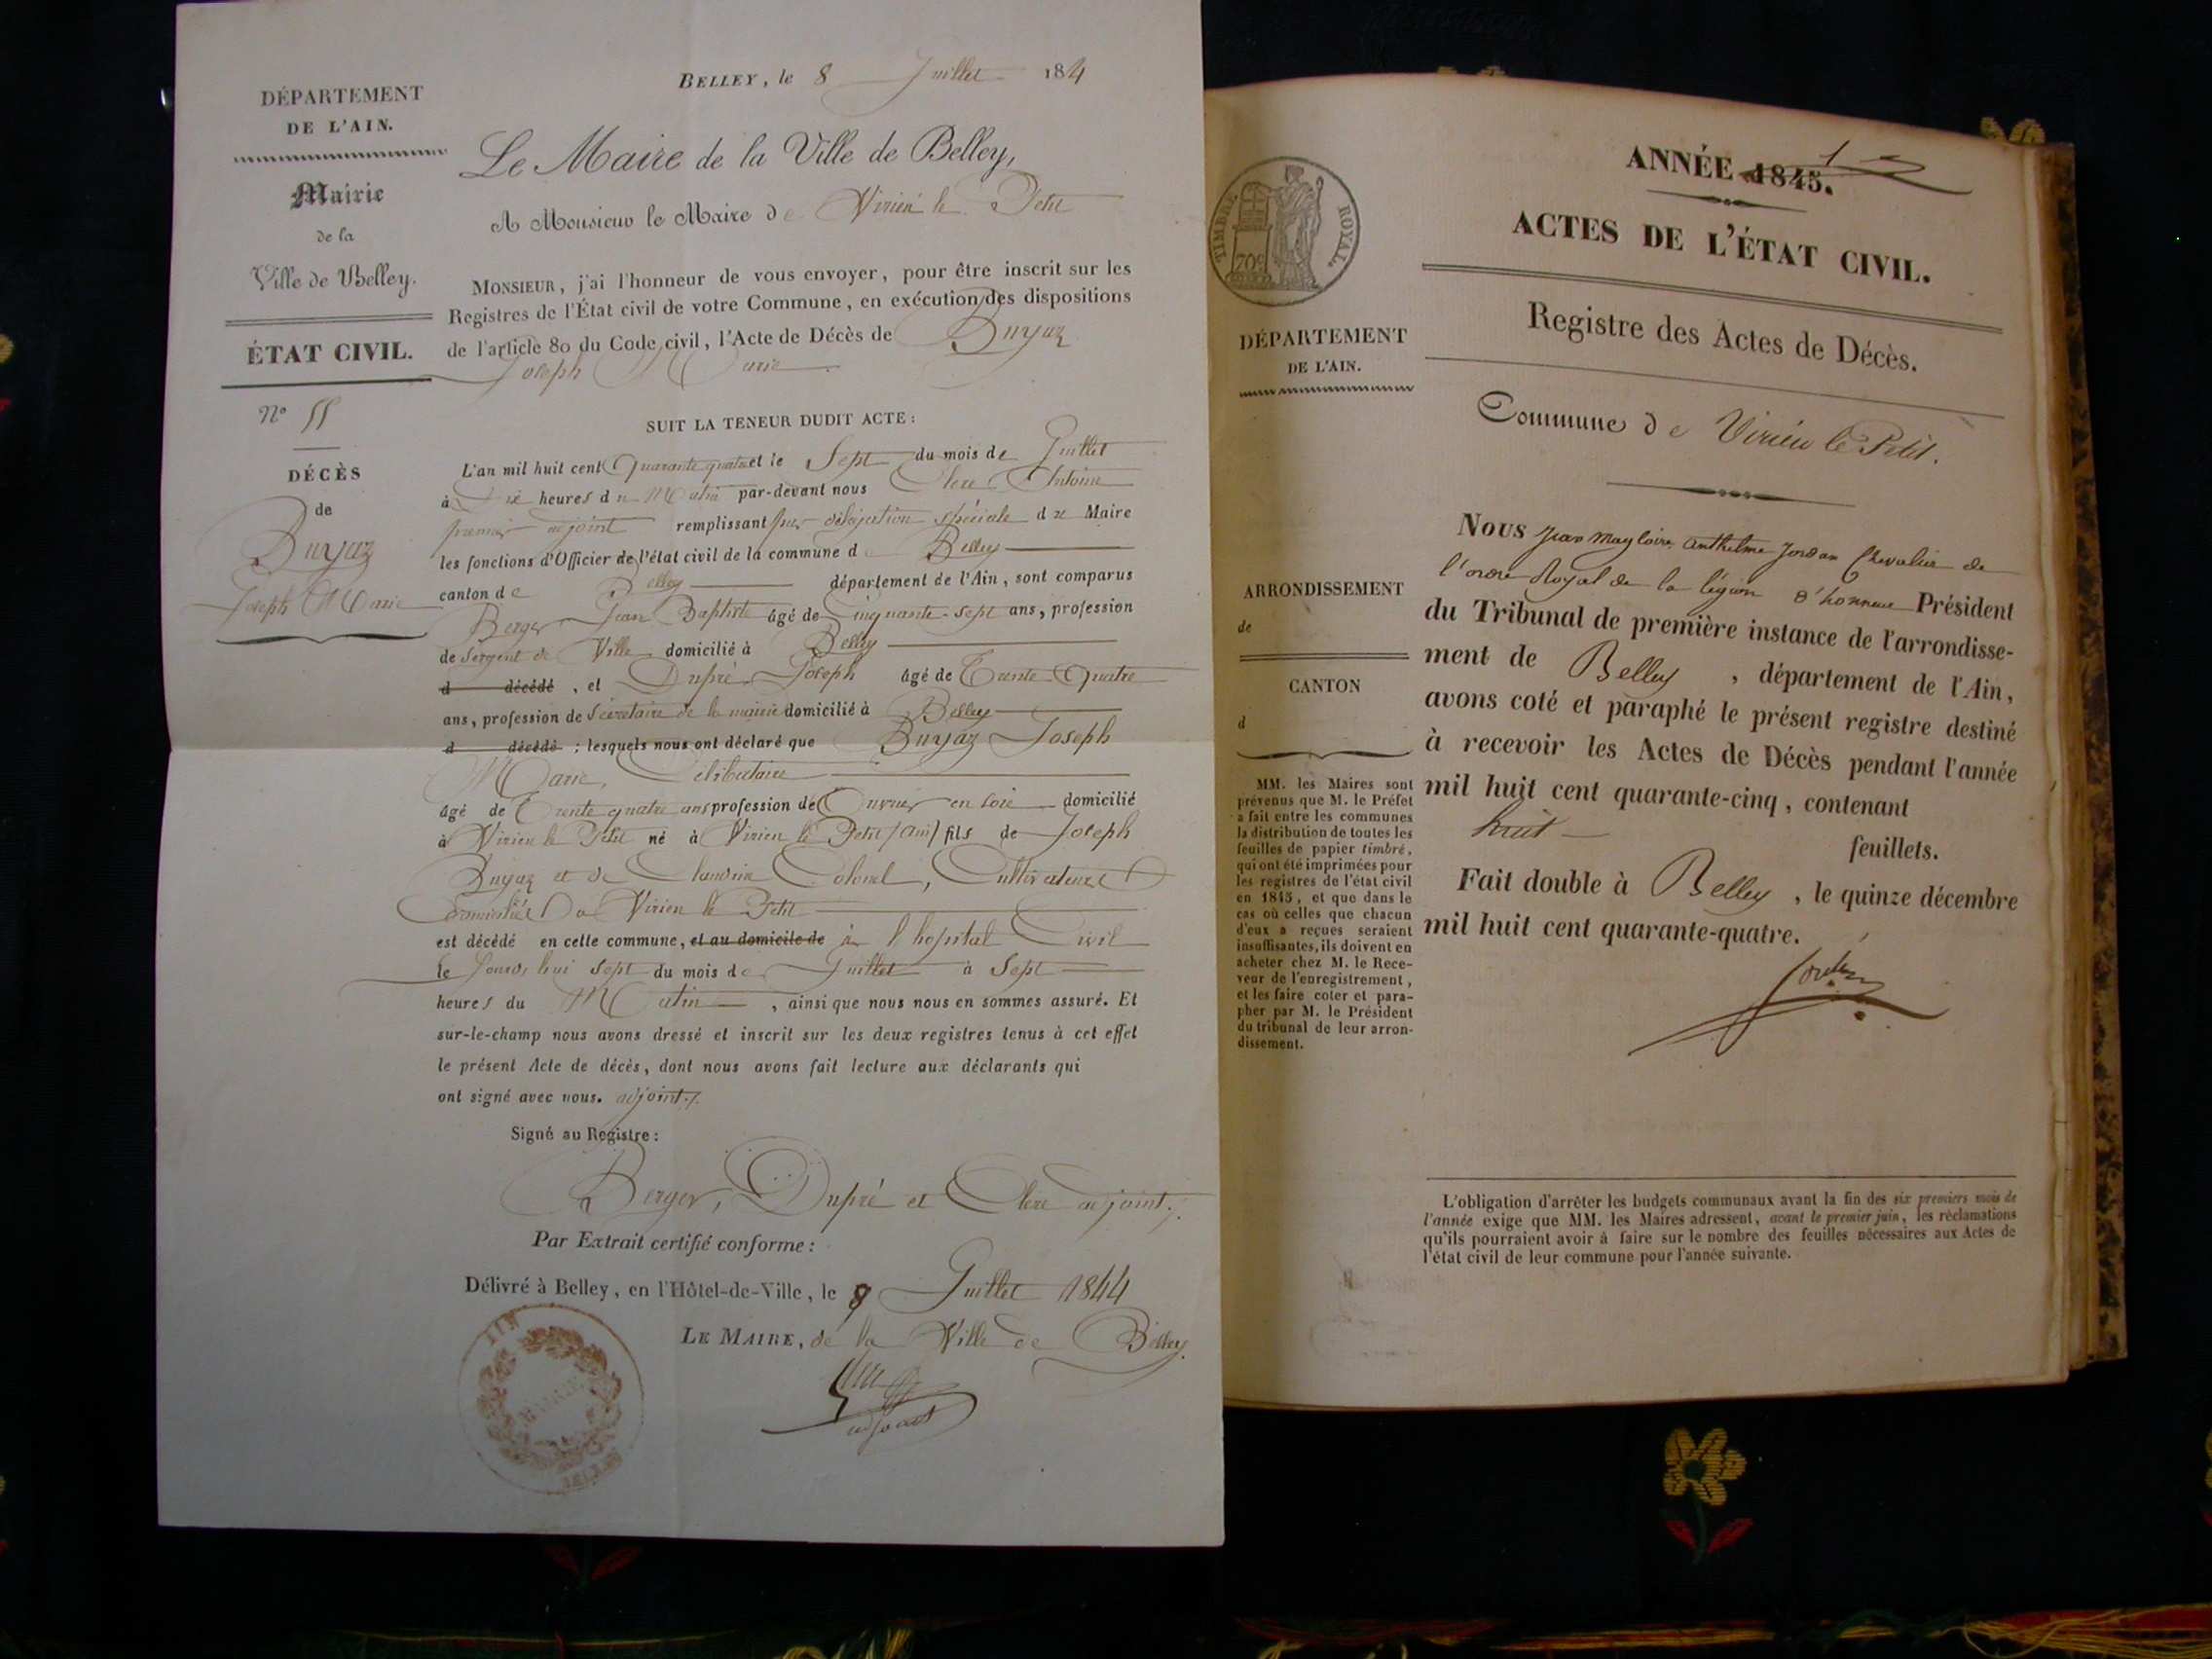 DÉPARTEMENT
DE L'AIN.
Mairie
de la
Ville de Belley.
ÉTAT CIVIL.
N° 55
DÉCÈS
de
Buyaz
Joseph Marie
BELLEY, le 8 Juillet 184
Le Maire de la Ville de Belley,
A Monsieur le Maire de Virieu le Petit
MONSIEUR, j'ai l'honneur de vous envoyer, pour être inscrit sur les
Registres de l'État civil de votre Commune, en exécution des dispositions
de l'article 80 du Code civil, l'Acte de Décès de Buyaz
Joseph Marie
SUIT LA TENEUR DUDIT ACTE :
L'an mil huit cent Quarante quatre et le Sept du mois de Juillet
à Dix heures du Matin par-devant nous Clerc Antoine
premier adjoint remplissant par délégation spéciale de Maire
les fonctions d'Officier de l'état civil de la commune de Belley
canton de Belley département de l'Ain, sont comparus
Berger Jean Baptiste âgé de Cinquante-sept ans, profession
de Sergent de Ville domicilié à Belley
d décédé , et Dupré Joseph âgé de Trente Quatre
ans, profession de Secrétaire de la mairie domicilié à Belley
d décédé ; lesquels nous ont déclaré que Buyaz Joseph
Marie, Célibataire
âgé de Trente quatre ans profession de Ouvrier en soie domicilié
à Virieu le Petit né à Virieu le Petit (Ain) fils de Joseph
Buyaz et de Claudine Colonel, Cultivateurs
domiciliés à Virieu le Petit
est décédé en cette commune, et au domicile de à l'hopital Civil
le Jourd'hui Sept du mois de Juillet à Sept
heures du Matin , ainsi que nous nous en sommes assuré. Et
sur-le-champ nous avons dressé et inscrit sur les deux registres tenus à cet effet
le présent Acte de décès, dont nous avons fait lecture aux déclarants qui
ont signé avec nous. adjoint ./.
Signé au Registre :
Berger, Dupré et Clerc adjoint ./.
Par Extrait certifié conforme :
Délivré à Belley, en l'Hôtel-de-Ville, le 8 Juillet 1844
LE MAIRE, de la Ville de Belley.
adjoint
AIN
MAIRIE
TIMBRE ROYAL.
70c
DÉPARTEMENT
DE L'AIN.
ARRONDISSEMENT
de
CANTON
d
MM. les Maires sont
prévenus que M. le Préfet
a fait entre les communes
la distribution de toutes les
feuilles de papier timbré,
qui ont été imprimées pour
les registres de l'état civil
en 1845, et que dans le
cas où celles que chacun
d'eux a reçues seraient
insuffisantes, ils doivent en
acheter chez M. le Rece-
veur de l'enregistrement,
et les faire coter et para-
pher par M. le Président
du tribunal de leur arron-
dissement.
ANNÉE 1845.
ACTES DE L'ÉTAT CIVIL.
Registre des Actes de Décès.
Commune de Virieu le Petit.
Nous Jean Magloire Anthelme Jordan Chevalier de
l'ordre Royal de la légion d'honneur Président
du Tribunal de première instance de l'arrondisse-
ment de Belley , département de l'Ain,
avons coté et paraphé le présent registre destiné
à recevoir les Actes de Décès pendant l'année
mil huit cent quarante-cinq, contenant
huit
feuillets.
Fait double à Belley , le quinze décembre
mil huit cent quarante-quatre.
Jordan
L'obligation d'arrêter les budgets communaux avant la fin des six premiers mois de
l'année exige que MM. les Maires adressent, avant le premier juin, les réclamations
qu'ils pourraient avoir à faire sur le nombre des feuilles nécessaires aux Actes de
l'état civil de leur commune pour l'année suivante.